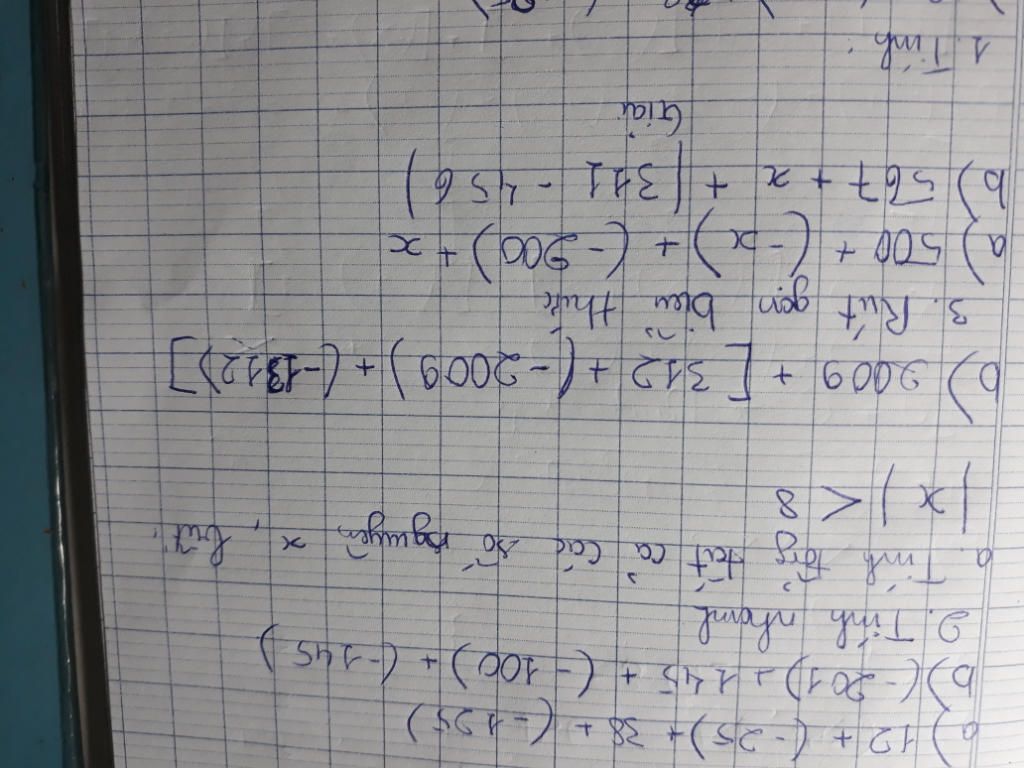 a) 12 + (-25) + 38 + (-125)
b) (-201) + 145 + (-100) + (-145)
2. Tính nhanh
a. Tính tổng tất cả các số nguyên x, biết:
|x| < 8
b) 2009 + [312 + (-2009) + (-1312)]
3. Rút gọn biểu thức
a) 500 + (-x) + (-200) + x
b) 567 + x + (311 - 456)
Giải
1. Tính: